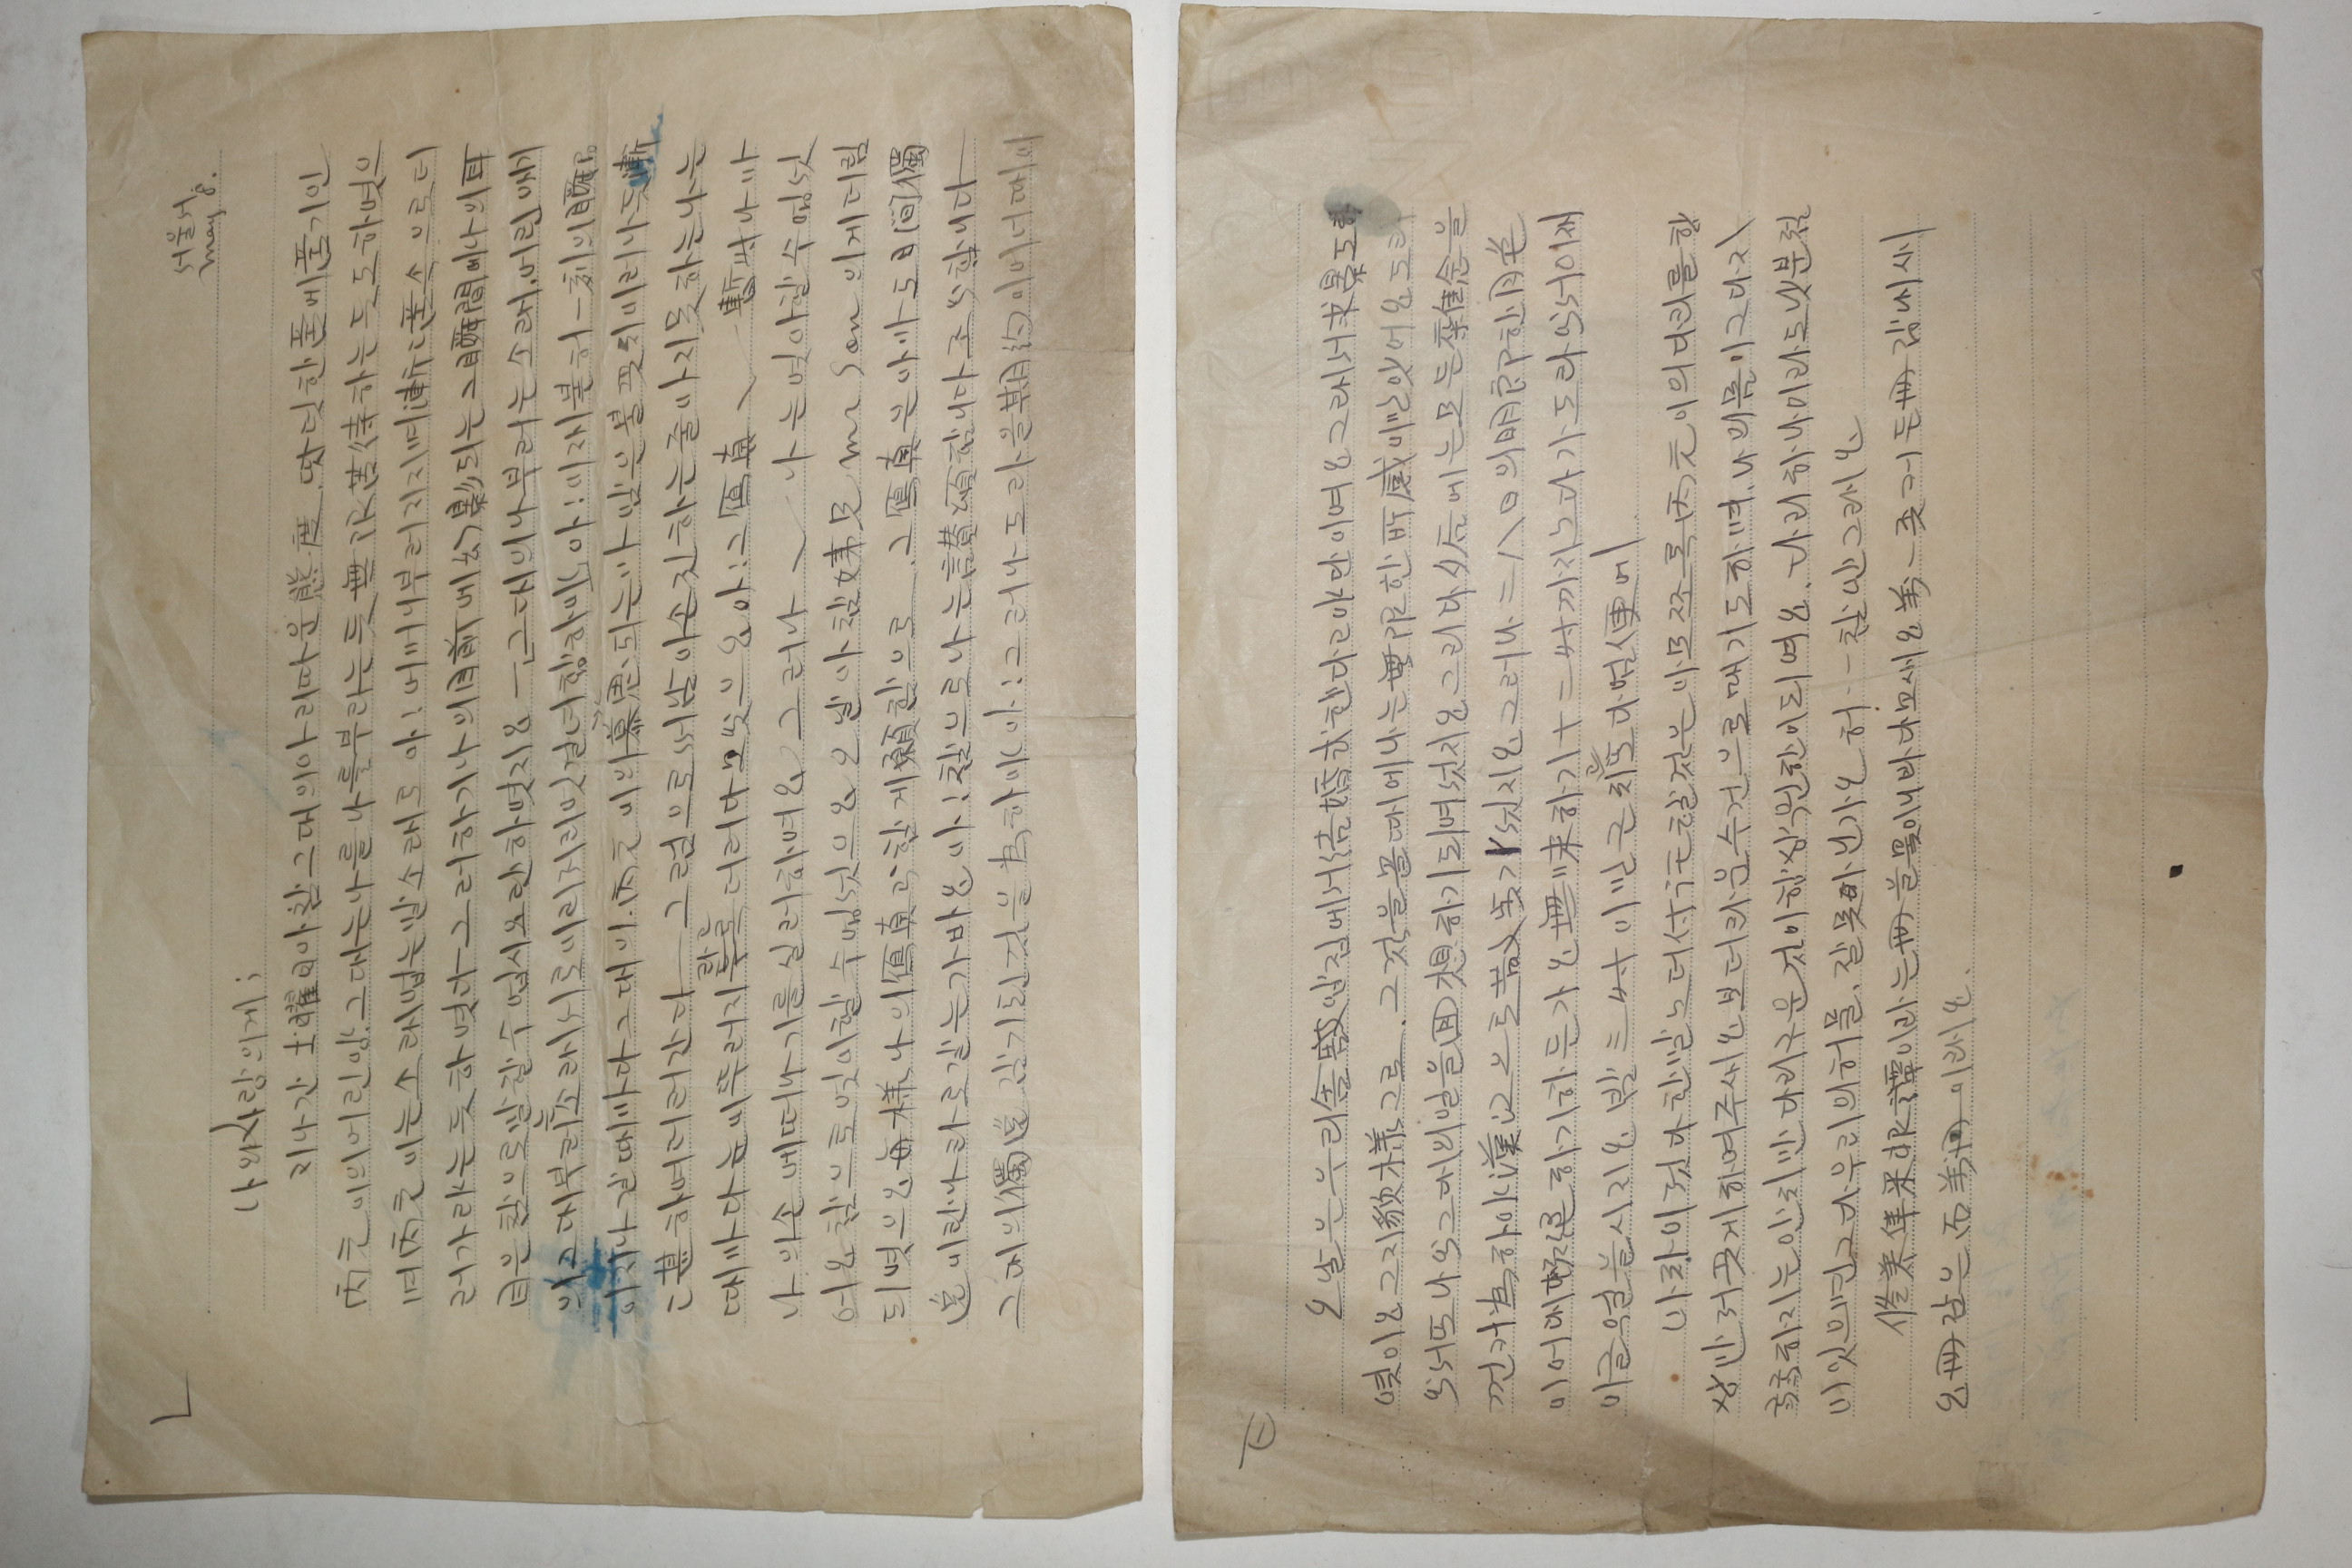 ㄴ
서울서.
May 8.
나의사랑의게;
지나간 土曜日아참그대의아리따운態度. 땃덧한품에품기인
丙元이의어린양. 그대는나를나를부라는듯無限苦待하는듯도하엿으
며丙元이는소래업는말소래로 아! 어머나부러지지며漸〻품속으로더
러가라는듯하엿다 그러하기나의目前에幻影되는그瞬間에나의耳
目은참으로말할수업시요란하엿지요 그대의나부러는소래, 어린애기
의그대부러는소래서로이리저리 아! 이재붙허一刻의瞬間
이지나갈때마다그대의. 丙元이의慕思되는마암은불꽃치이러나듯漸
〻甚하여더러간다 그럼으로써날아손진하는줄아지못하는나는
때마다눈이뚜러지라고 더러다보앗으요 아! 그寫真 暫時나마
나의손에떠나기를실러하여요 그러나 나는엇아할수업섯
어요참으로엇이할수업섯으요오날아참妹兄 Mr Son 의게더림
되엿으요每樣나의寫真과함게願함으로. 그寫真은아마도日間獨
逸이란나라로갈는가바요아! 참으로나는讃頌합니다조아합니다
그대의獨逸감기된것을為하야아! 그러나도라올期約이어너때이
ㄷ
오날은우리舍廊압집에서結婚式한다고야단이여요그래서求景도하
엿이요그저貌樣그로. 그것을볼때에나는無限한所感이만앗어요도라
와서또나와그대의일을回想하기되여섯지요그리다夕后에는모든雜念을
껀커為하야漢江으로散步가섯지요그러나二八日의明朗한月光
이어대 하기하든가요無味하기十二時까지노다가도라와서이제
이글월을시지요발三時이만곤치고 다엄便에
마참이젓다한말노더付託할것은아모쪼록丙元이의다리를항
상만저꼿게하여주씨요보더라운수건으로매기도하며. 나의몸이그다지
국국하지는안치만다리구운것이항상원한이되여요. 다리하나이라도낫분점
이잇으면그다우리의허물. 잘못아닌가요 허·一참안그래요
修養雋采根譚이라는冊을 바다보씨요萬一좃커든冊갑내씨
요冊갑은 이래요.